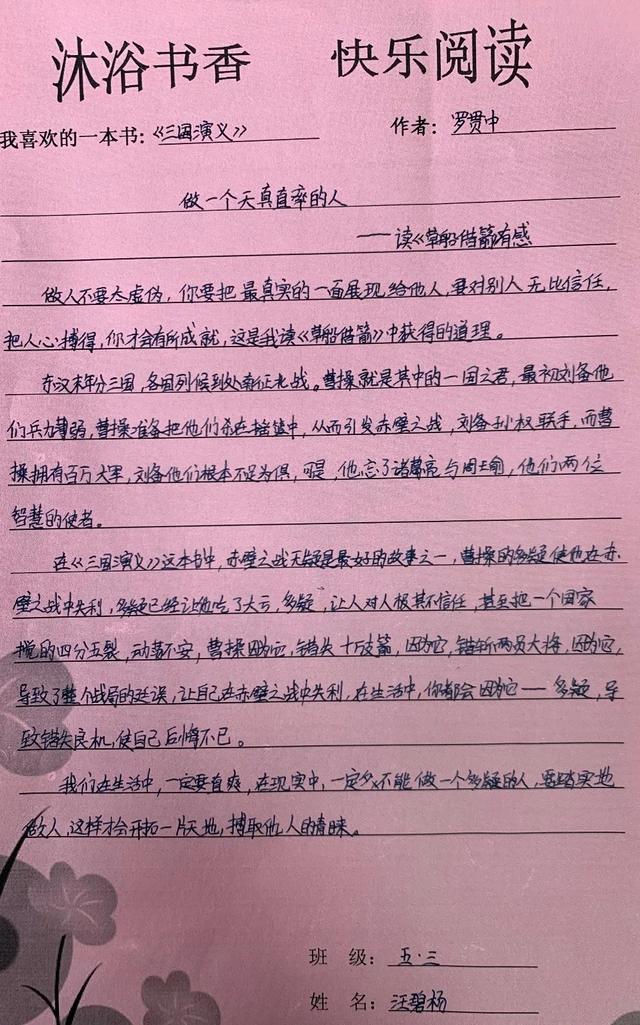 沐浴书香 快乐阅读
我喜欢的一本书:《三国演义》 作者:罗贯中
做一个天真直率的人
——读《草船借箭有感
做人不要太虚伪,你要把最真实的一面展现给他人,要对别人无比信任,
把人心搏得,你才会有所成就,这是我读《草船借箭》中获得的道理。
东汉末年分三国,各国列候到处南征北战。曹操就是其中的一国之君,最初刘备他
们兵力薄弱,曹操准备把他们杀在摇篮中,从而引发赤壁之战,刘备孙权联手,而曹
操拥有百万大军,刘备他们根本不足为惧,可是,他忘了诸葛亮与周瑜,他们两位
智慧的使者。
在《三国演义》这本书中,赤壁之战无疑是最好的故事之一,曹操的多疑使他在赤
壁之战中失利,多疑已经让他吃了大亏,多疑,让人对人极其不信任,甚至把一个国家
搅的四分五裂,动荡不安,曹操因为它,错失十万支箭,因为它,错斩两员大将,因为它,
导致了整个战局的延误,让自己在赤壁之战中失利,在生活中,你都会因为它——多疑,导
致错失良机,使自己后悔不已。
我们在生活中,一定要直爽,在现实中,一定必不能做一个多疑的人,要踏实地
做人,这样才会开拓一片天地,搏取他人的青睐。
班 级:五·三
姓 名:汪碧杨